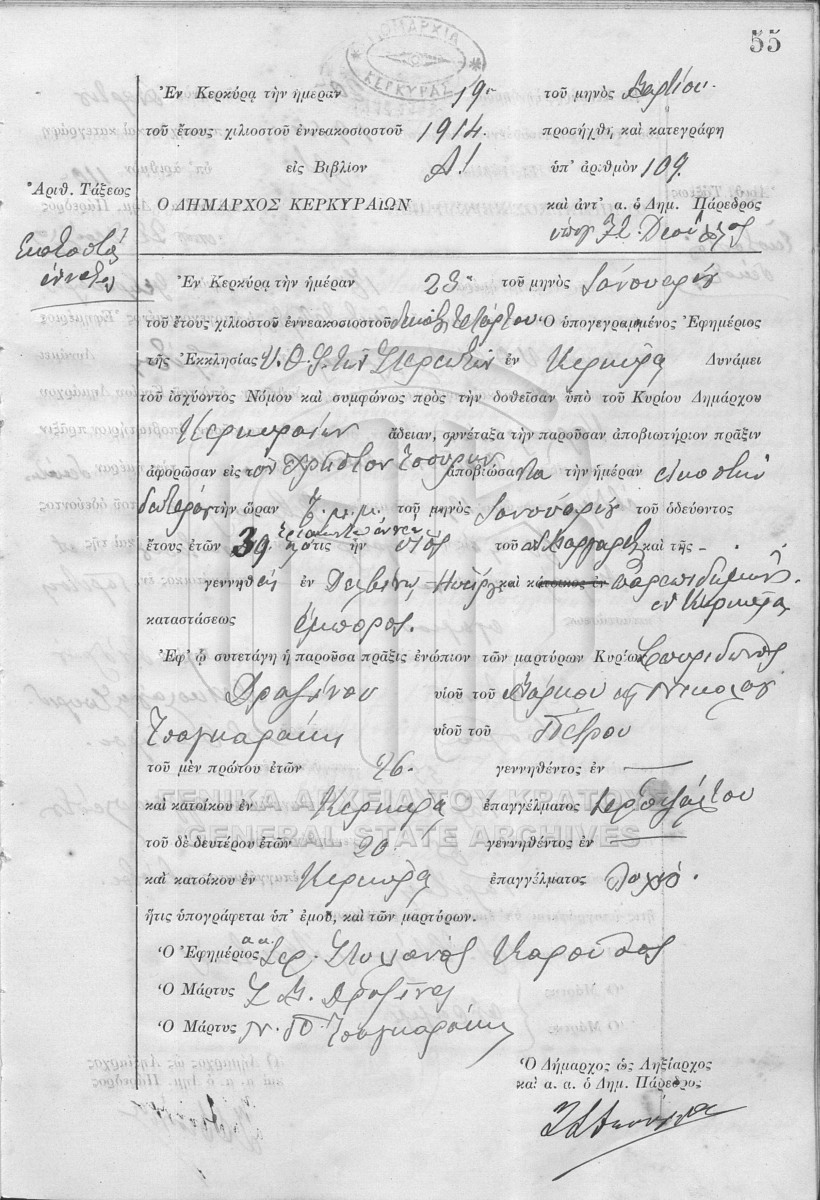 55
ΝΟΜΑΡΧΙΑ ΚΕΡΚΥΡΑΣ
Ἐν Κερκύρᾳ τὴν ἡμέραν 19ην τοῦ μηνὸς Μαρτίου
τοῦ ἔτους χιλιοστοῦ ἐννεακοσιοστοῦ 1914. προσήχθη καὶ κατεγράφη
εἰς Βιβλίον Α' ὑπ' ἀριθμὸν 109.
Ἀριθ. Τάξεως
Ο ΔΗΜΑΡΧΟΣ ΚΕΡΚΥΡΑΙΩΝ καὶ ἀντ' α. ὁ Δημ. Πάρεδρος
Ἑκατοστὸς
ἔννατος
Ἐν Κερκύρᾳ τὴν ἡμέραν 23ην τοῦ μηνὸς Ἰανουαρίου
τοῦ ἔτους χιλιοστοῦ ἐννεακοσιοστοῦ δεκάτου τετάρτου Ὁ ὑπογεγραμμένος Ἐφημέριος
τῆς Ἐκκλησίας ἐν Κερκύρᾳ Δυνάμει
τοῦ ἰσχύοντος Νόμου καὶ συμφώνως πρὸς τὴν δοθεῖσαν ὑπὸ τοῦ Κυρίου Δημάρχου
Κερκυραίων ἄδειαν, συνέταξα τὴν παροῦσαν ἀποβιωτήριον πρᾶξιν
ἀφορῶσαν εἰς τὸν Χρῆστον ἀποβιώσαντα τὴν ἡμέραν εἰκοστὴν
δευτέραν τὴν ὥραν 7 μ.μ. τοῦ μηνὸς Ἰανουαρίου τοῦ ὁδεύοντος
ἔτους ἐτῶν 39 τριάκοντα ἐννέα ὅστις ἦν υἱὸς τοῦ καὶ τῆς –
γεννηθεὶς ἐν Δελβίνῳ Ἠπείρου καὶ κάτοικος ἐν παρεπιδημῶν
ἐν Κερκύρᾳ
καταστάσεως ἔμπορος.
Ἐφ' ᾧ συνετάγη ἡ παροῦσα πρᾶξις ἐνώπιον τῶν μαρτύρων Κυρίων Σπυρίδωνος
Δραζίνου υἱοῦ τοῦ Μάρκου καὶ Νικολάου
Τσαγκαράκη υἱοῦ τοῦ Πέτρου
τοῦ μὲν πρώτου ἐτῶν 26. γεννηθέντος ἐν —
καὶ κατοίκου ἐν Κερκύρᾳ ἐπαγγέλματος ἱεροψάλτου
τοῦ δὲ δευτέρου ἐτῶν 20. γεννηθέντος ἐν —
καὶ κατοίκου ἐν Κερκύρᾳ ἐπαγγέλματος
ἥτις ὑπογράφεται ὑπ' ἐμοῦ, καὶ τῶν μαρτύρων.
Ὁ Ἐφημέριος α.α. Ἱερ. Στυλιανὸς Καρούσος
Ὁ Μάρτυς Σ. Μ. Δραζίνος
Ὁ Μάρτυς Ν. Π. Τσαγκαράκης
Ὁ Δήμαρχος ὡς Ληξίαρχος
καὶ α. α. ὁ Δημ. Πάρεδρος
ΓΕΝΙΚΑ ΑΡΧΕΙΑ ΤΟΥ ΚΡΑΤΟΥΣ
GENERAL STATE ARCHIVES